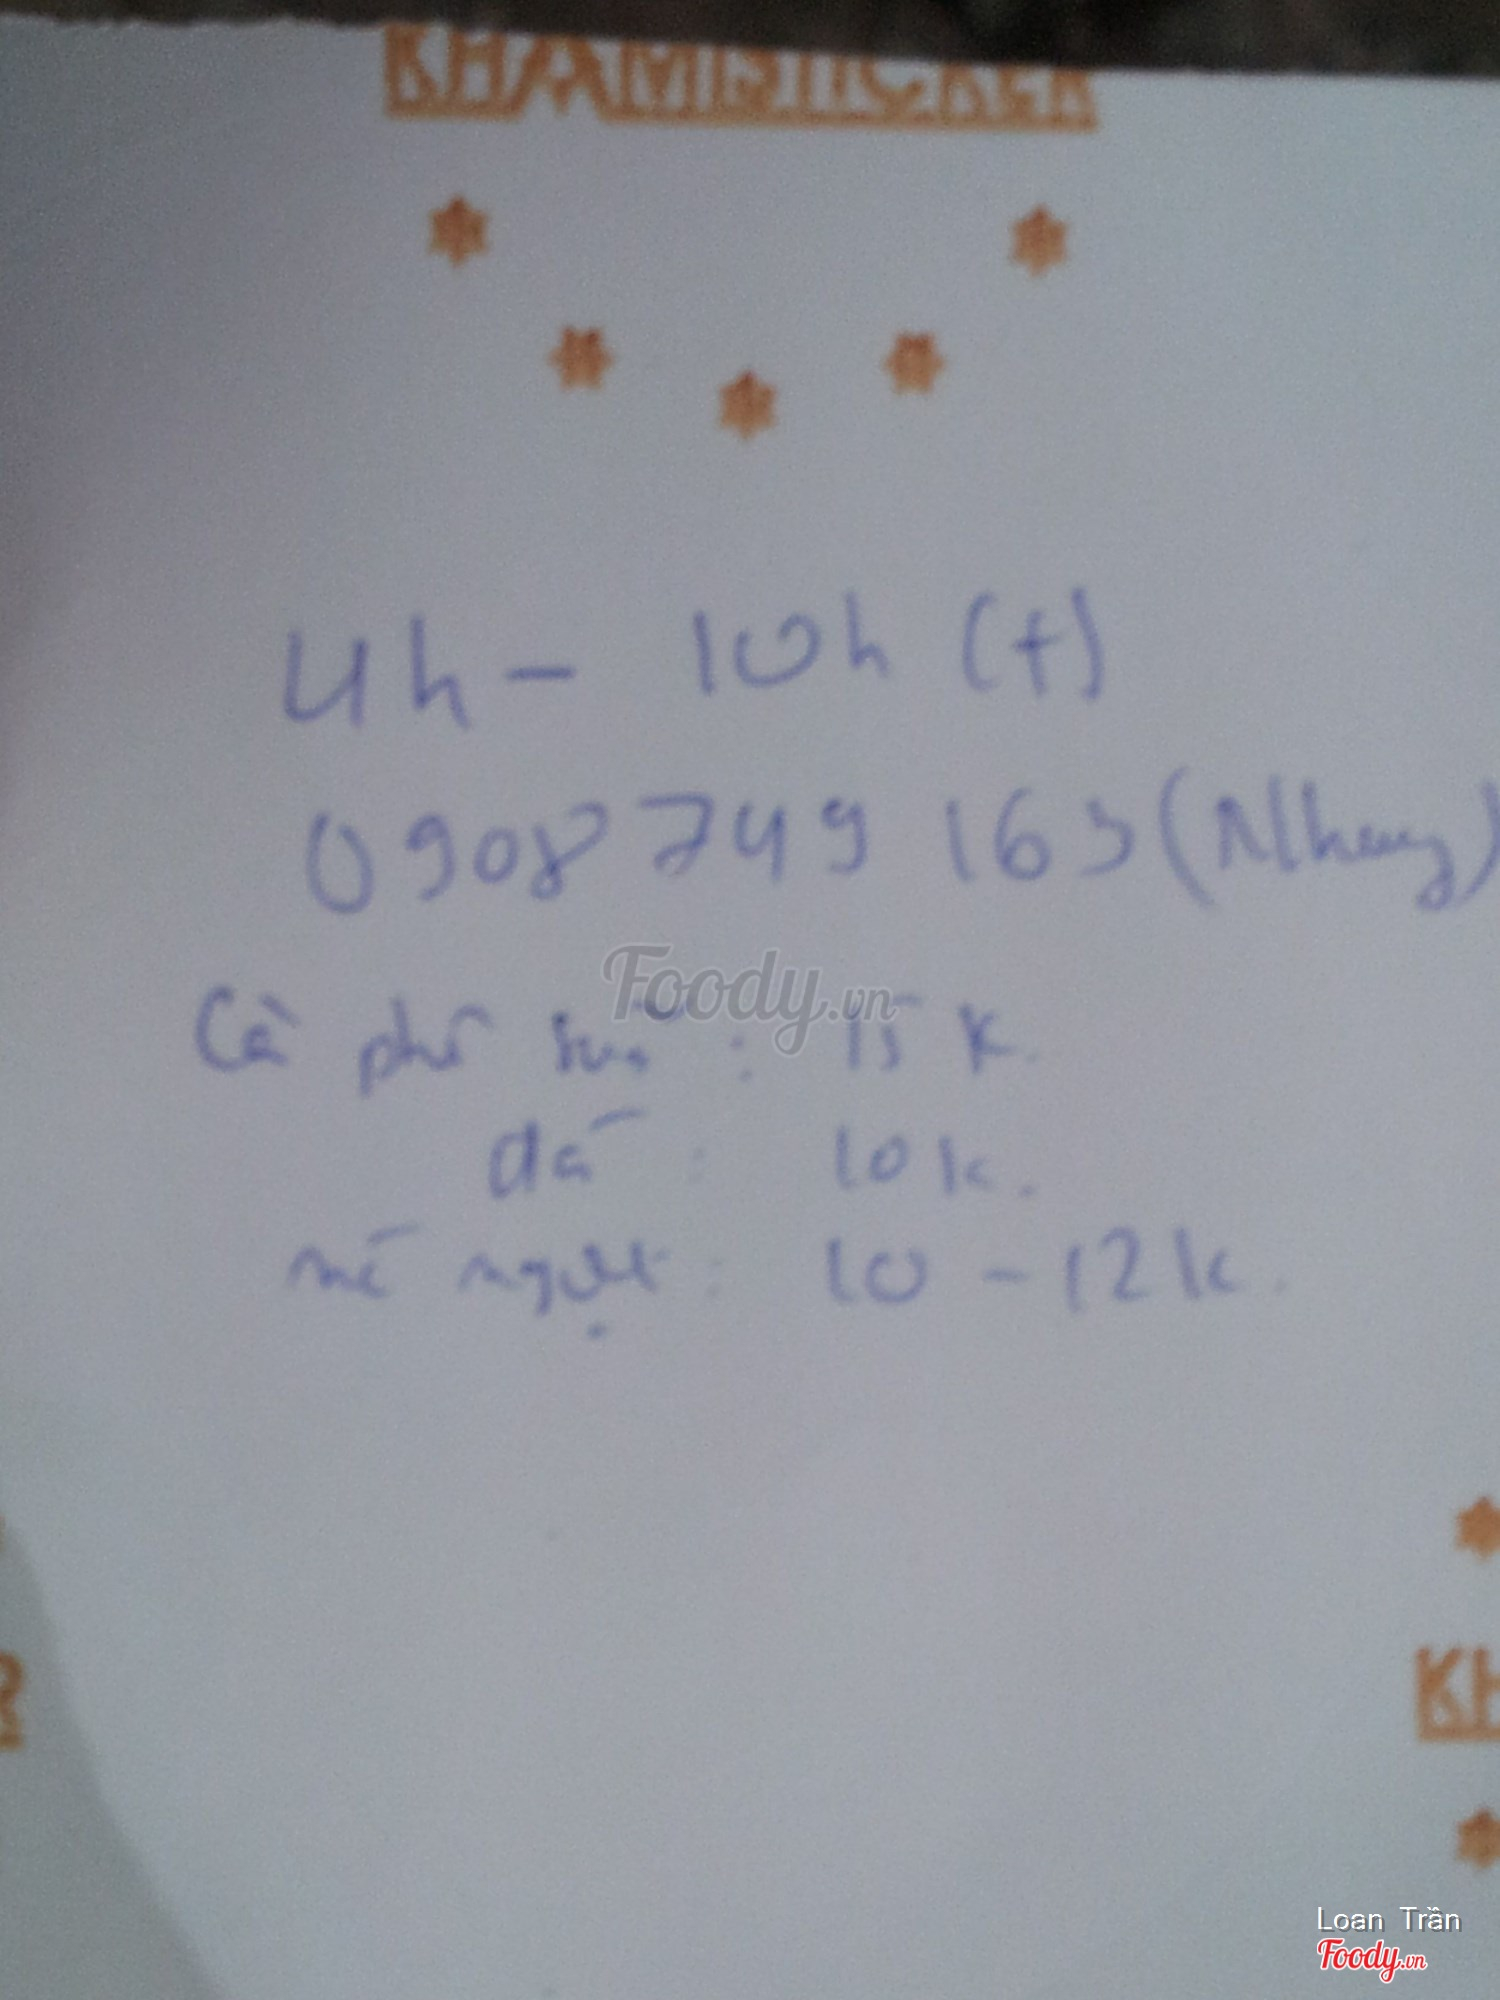 KHAMSTICKER
4h - 10h (t)
0908 749 163 (Nhung)
Foody.vn
Cà phê sữa : 15 k.
đá : 10 k.
nước ngọt : 10 - 12 k.
R
KH
Loan Trần
Foody.vn